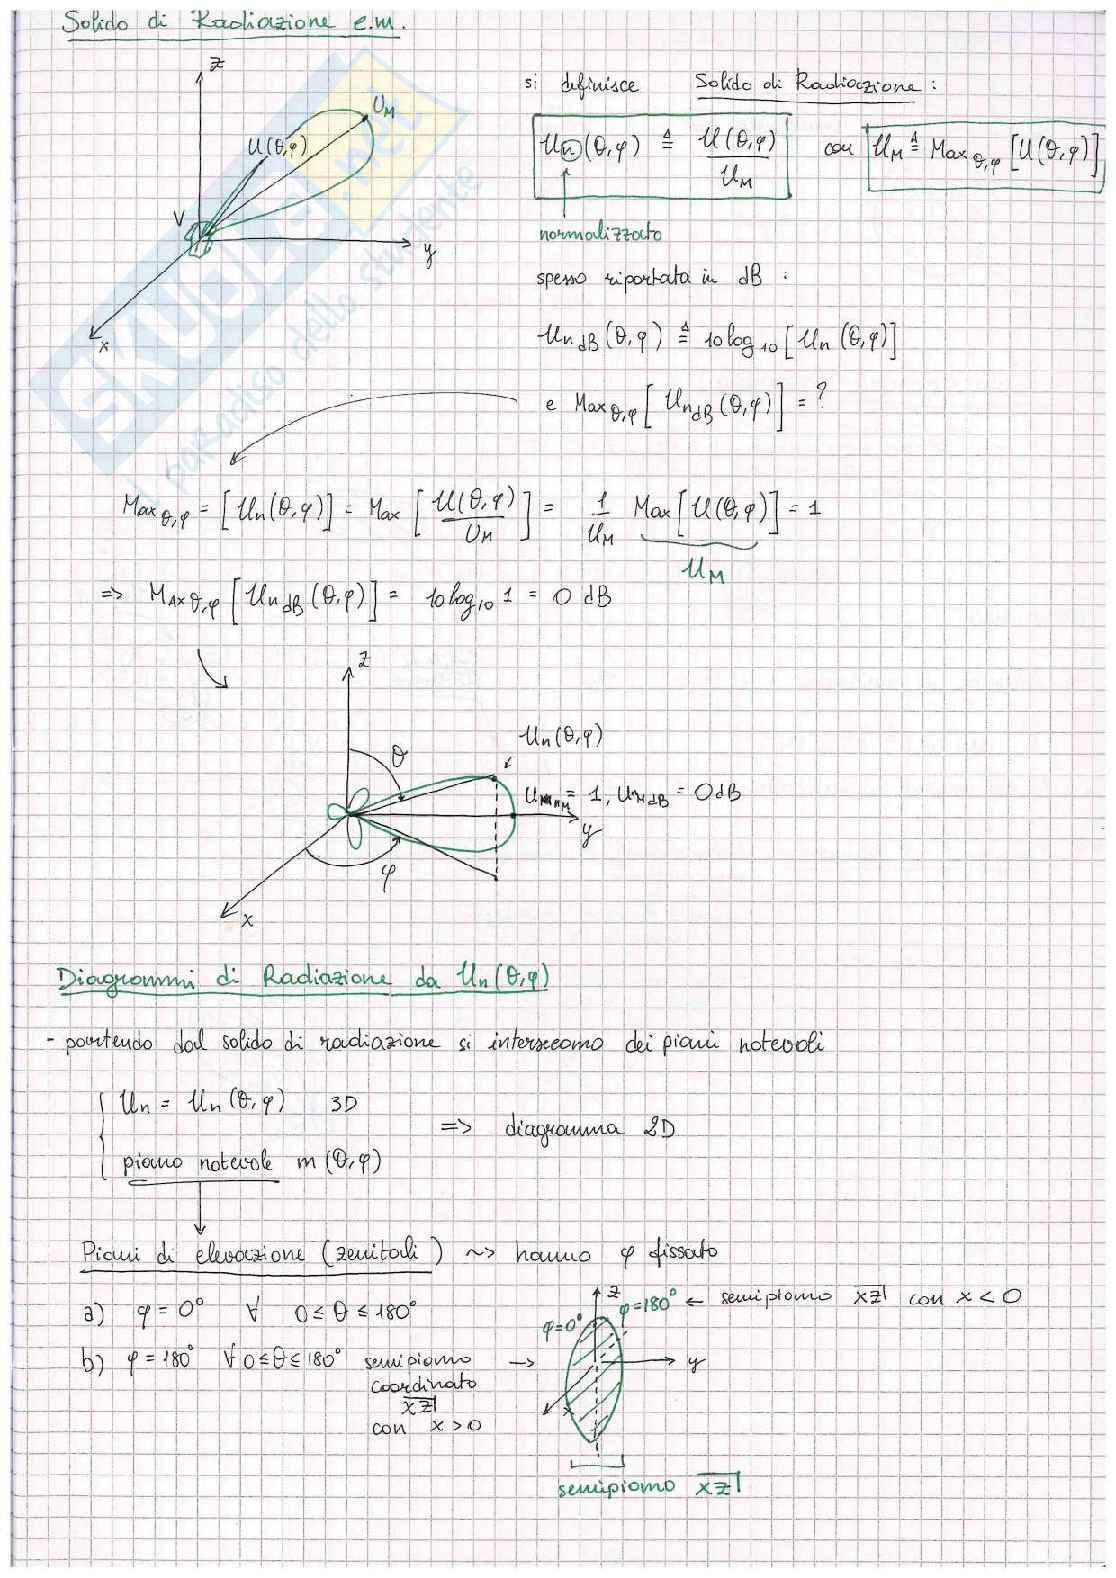 Solido di Radiazione e.m.
z
U_M
U(θ,φ)
V
y
x
si definisce Solido di Radiazione :
U_n(θ,φ) ≜ U(θ,φ) / U_M con U_M ≜ Max_θ,φ [U(θ,φ)]
normalizzato
spesso riportata in dB :
U_n dB (θ,φ) ≜ 10 log_10 [U_n (θ,φ)]
e Max_θ,φ [U_n dB (θ,φ)] = ?
Max_θ,φ = [U_n(θ,φ)] = Max [U(θ,φ) / U_M] = 1/U_M Max[U(θ,φ)] = 1
U_M
=> Max_θ,φ [U_n dB (θ,φ)] = 10 log_10 1 = 0 dB
z
U_n(θ,φ)
θ
= 1, U_M dB = 0 dB
y
φ
x
Diagrammi di Radiazione da U_n(θ,φ)
- partendo dal solido di radiazione si intersecano dei piani notevoli
U_n = U_n (θ,φ) 3D
=> diagramma 2D
piano notevole m (θ,φ)
Piani di elevazione (zenitali) ~> hanno φ fissato
a) φ = 0° ∀ 0 ≤ θ ≤ 180°
z
φ=180° ← semipiano xz con x < 0
φ=0°
b) φ = 180° ∀ 0 ≤ θ ≤ 180° semipiano →
coordinato
xz
con x > 0
y
x
semipiano xz
SKUOLA.net
il paradiso dello studente